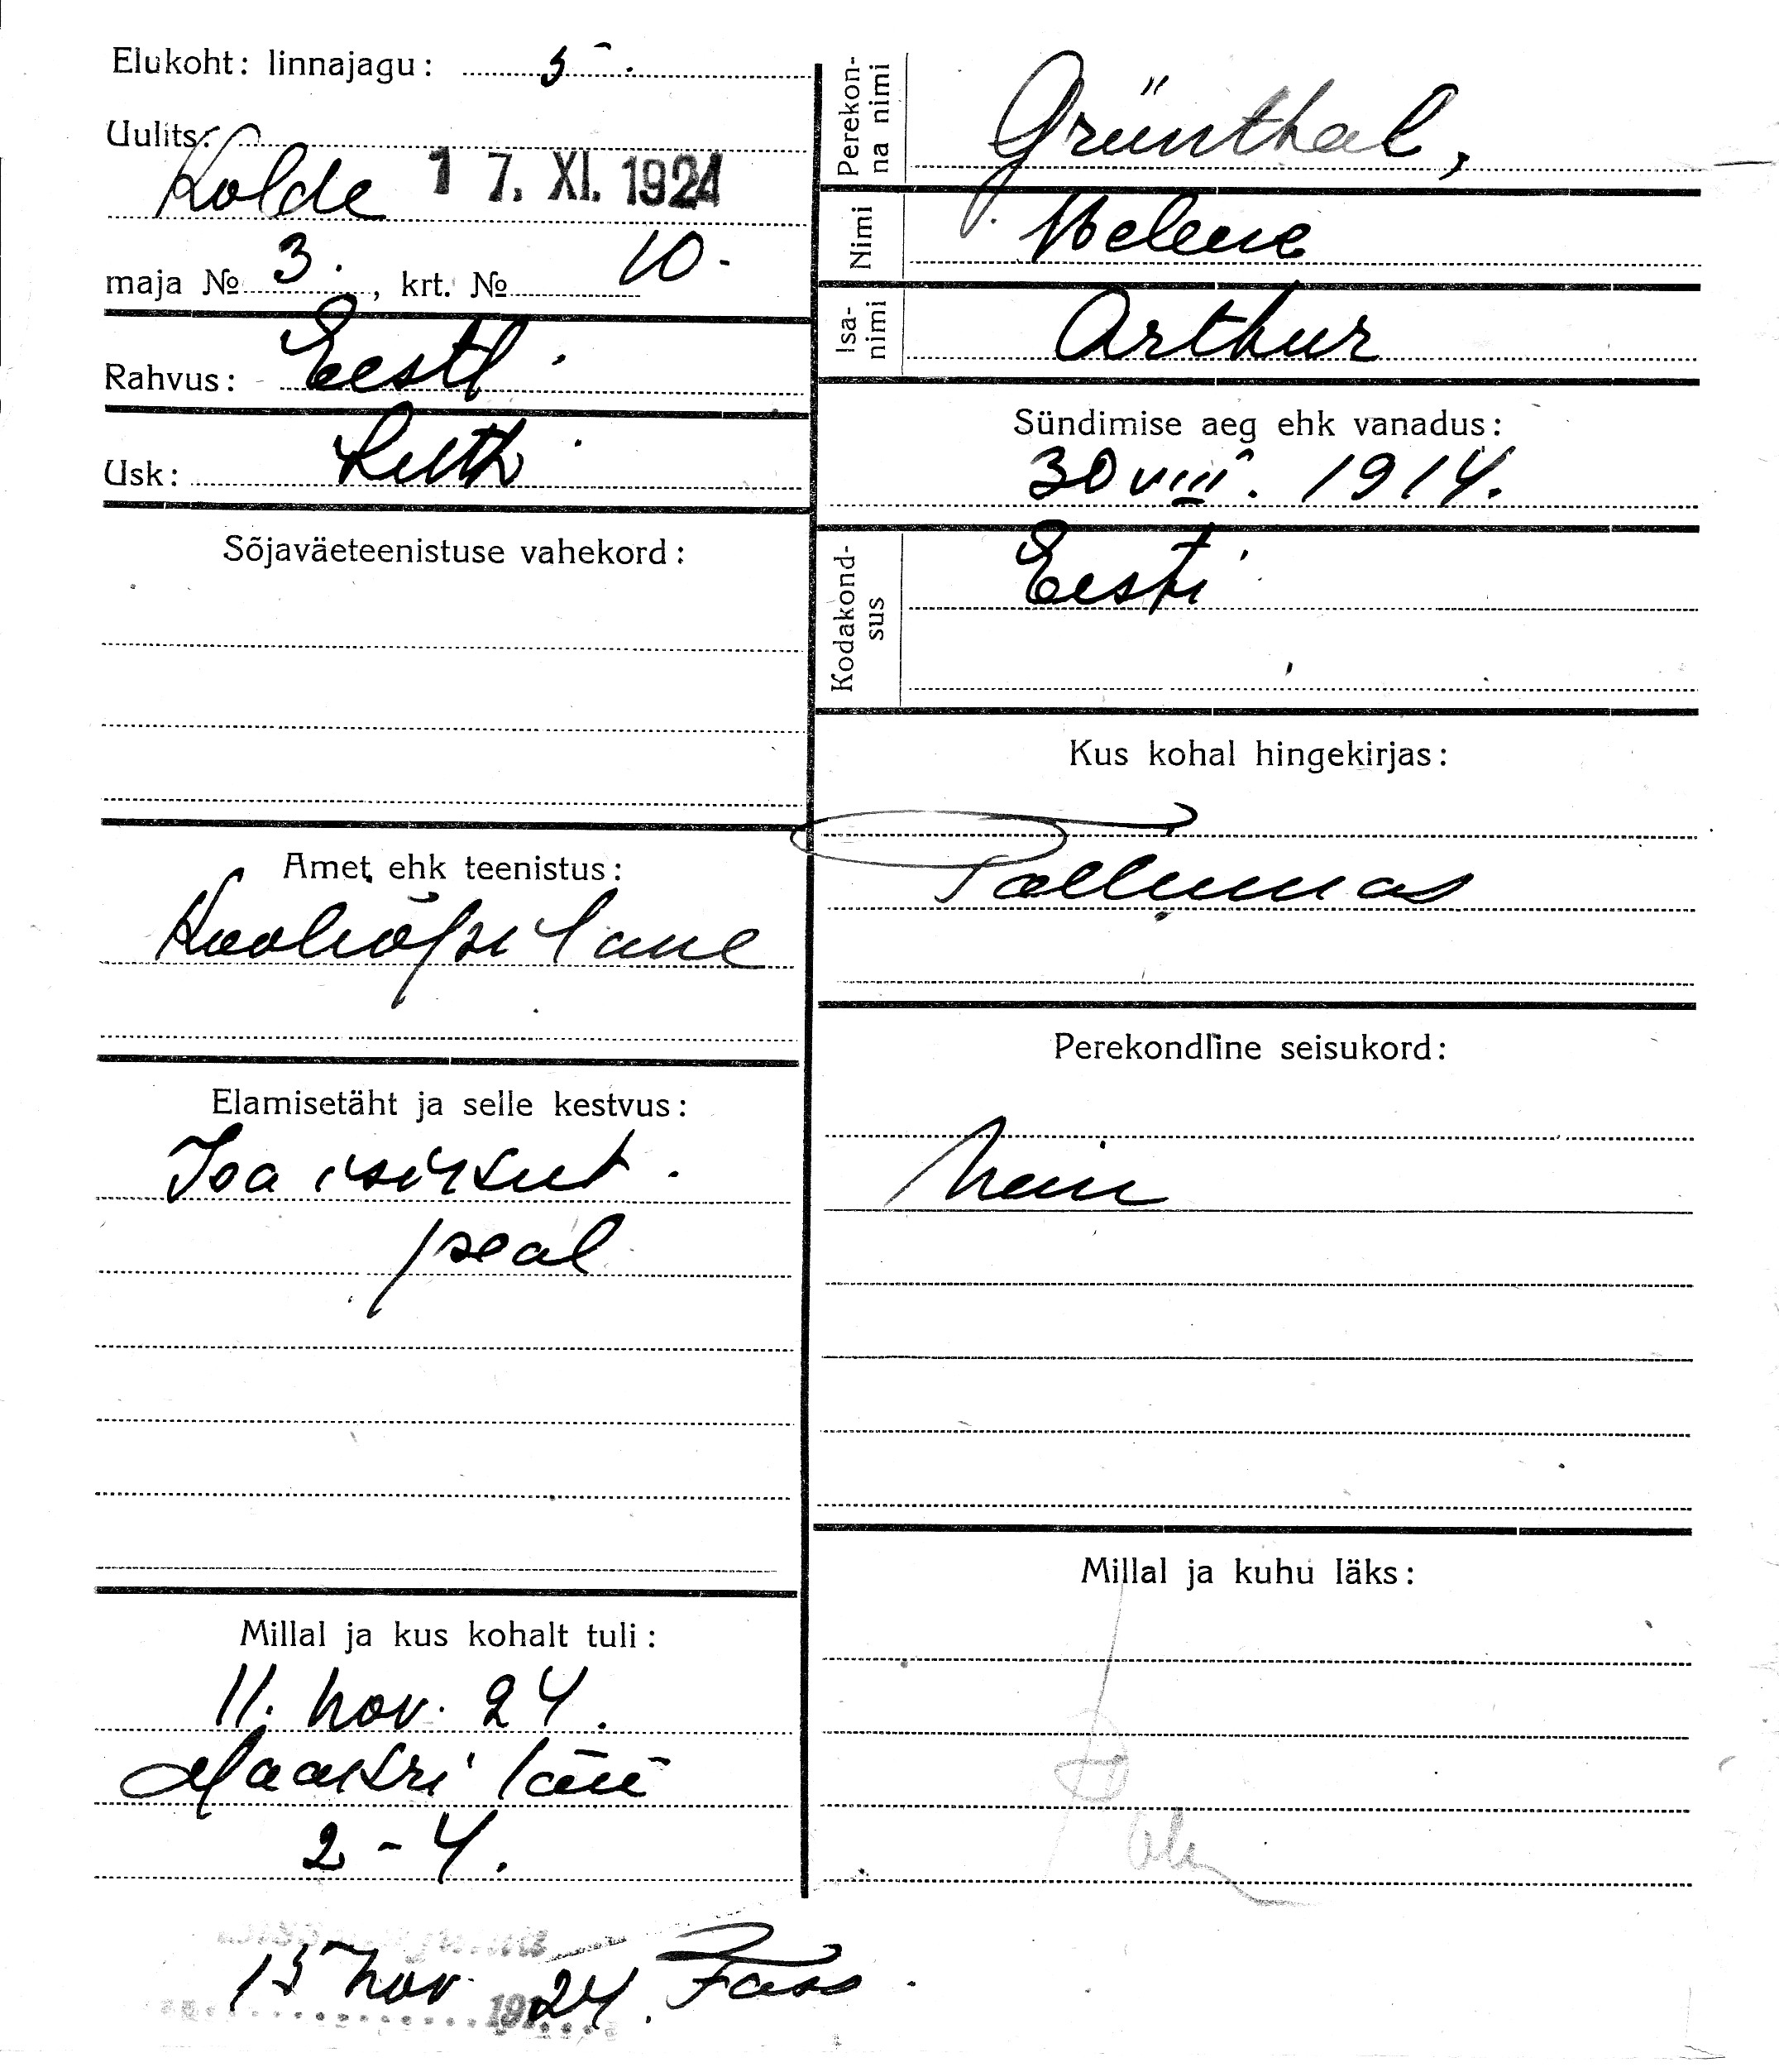 Elukoht: linnajagu: 5.
Uulits:
Kolde 17. XI. 1924
maja № 3., krt. № 10.
Rahvus: Eesti.
Usk: Luth.
Sõjaväeteenistuse vahekord:
Amet ehk teenistus:
Kooliõpilane
Elamisetäht ja selle kestvus:
Isa isikut.
peal
Millal ja kus kohalt tuli:
11. nov. 24.
2-4.
15 nov. 1924.
Perekonna nimi
Grünthal,
Nimi
Helene
Isanimi
Arthur
Sündimise aeg ehk vanadus:
30 VIII. 1914.
Kodakond-
sus
Eesti
Kus kohal hingekirjas:
Tallinnas
Perekondline seisukord:
Millal ja kuhu läks: